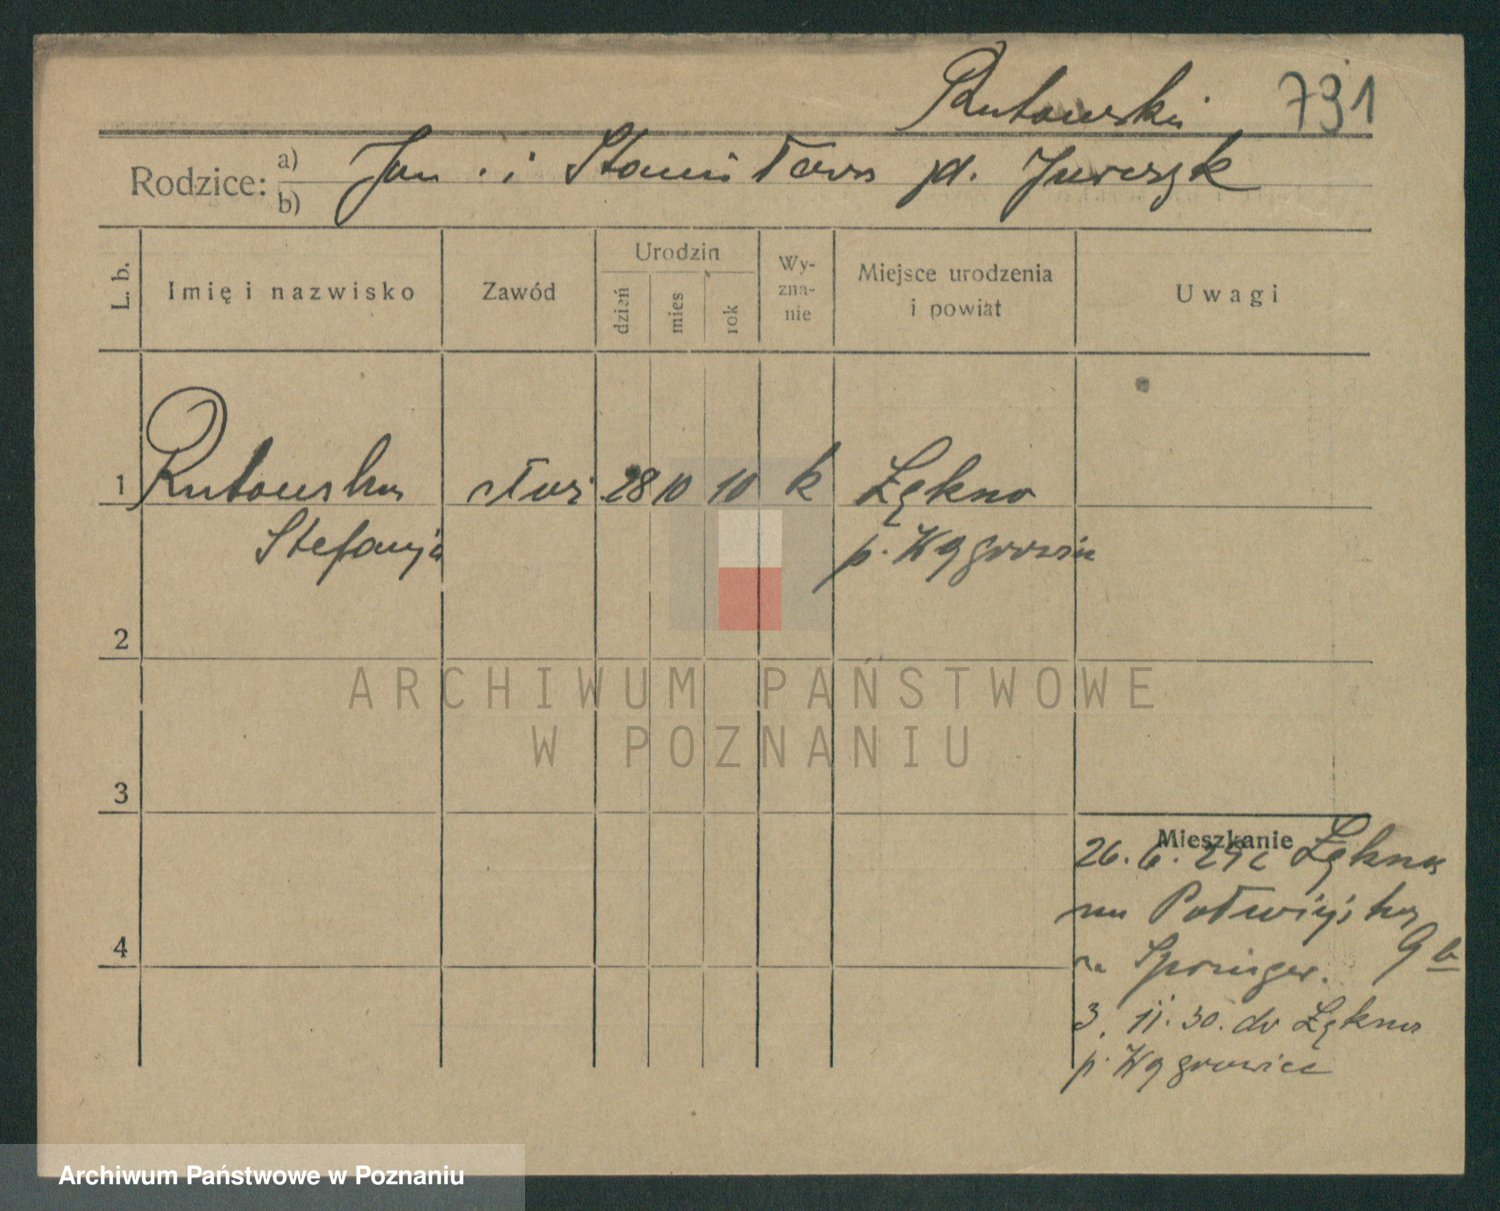 Rutowski 731
Rodzice: a) b) Jan i Stanisława d. Jurczyk
L. b. Imię i nazwisko Zawód Urodzin dzień mies rok Wy-zna-nie Miejsce urodzenia i powiat Uwagi
1 Rutowska służ 28 10 10 k Łękno
Stefanja p. Wągrowiec
2
ARCHIWUM PAŃSTWOWE
W POZNANIU
3
Mieszkanie
26. 6. 29 z Łekna
na Półwiejską 9 b
4
3. 11. 30. do Łękna
p. Wągrowiec
Archiwum Państwowe w Poznaniu